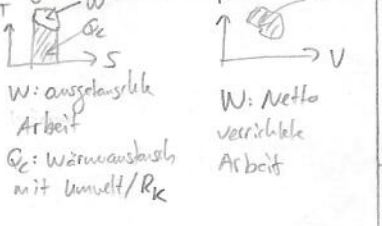 T
W
Qc
S
V
W: ausgetauschte
Arbeit
Qc: Wärmeaustausch
mit Umwelt/RK
W: Netto
verrichtete
Arbeit